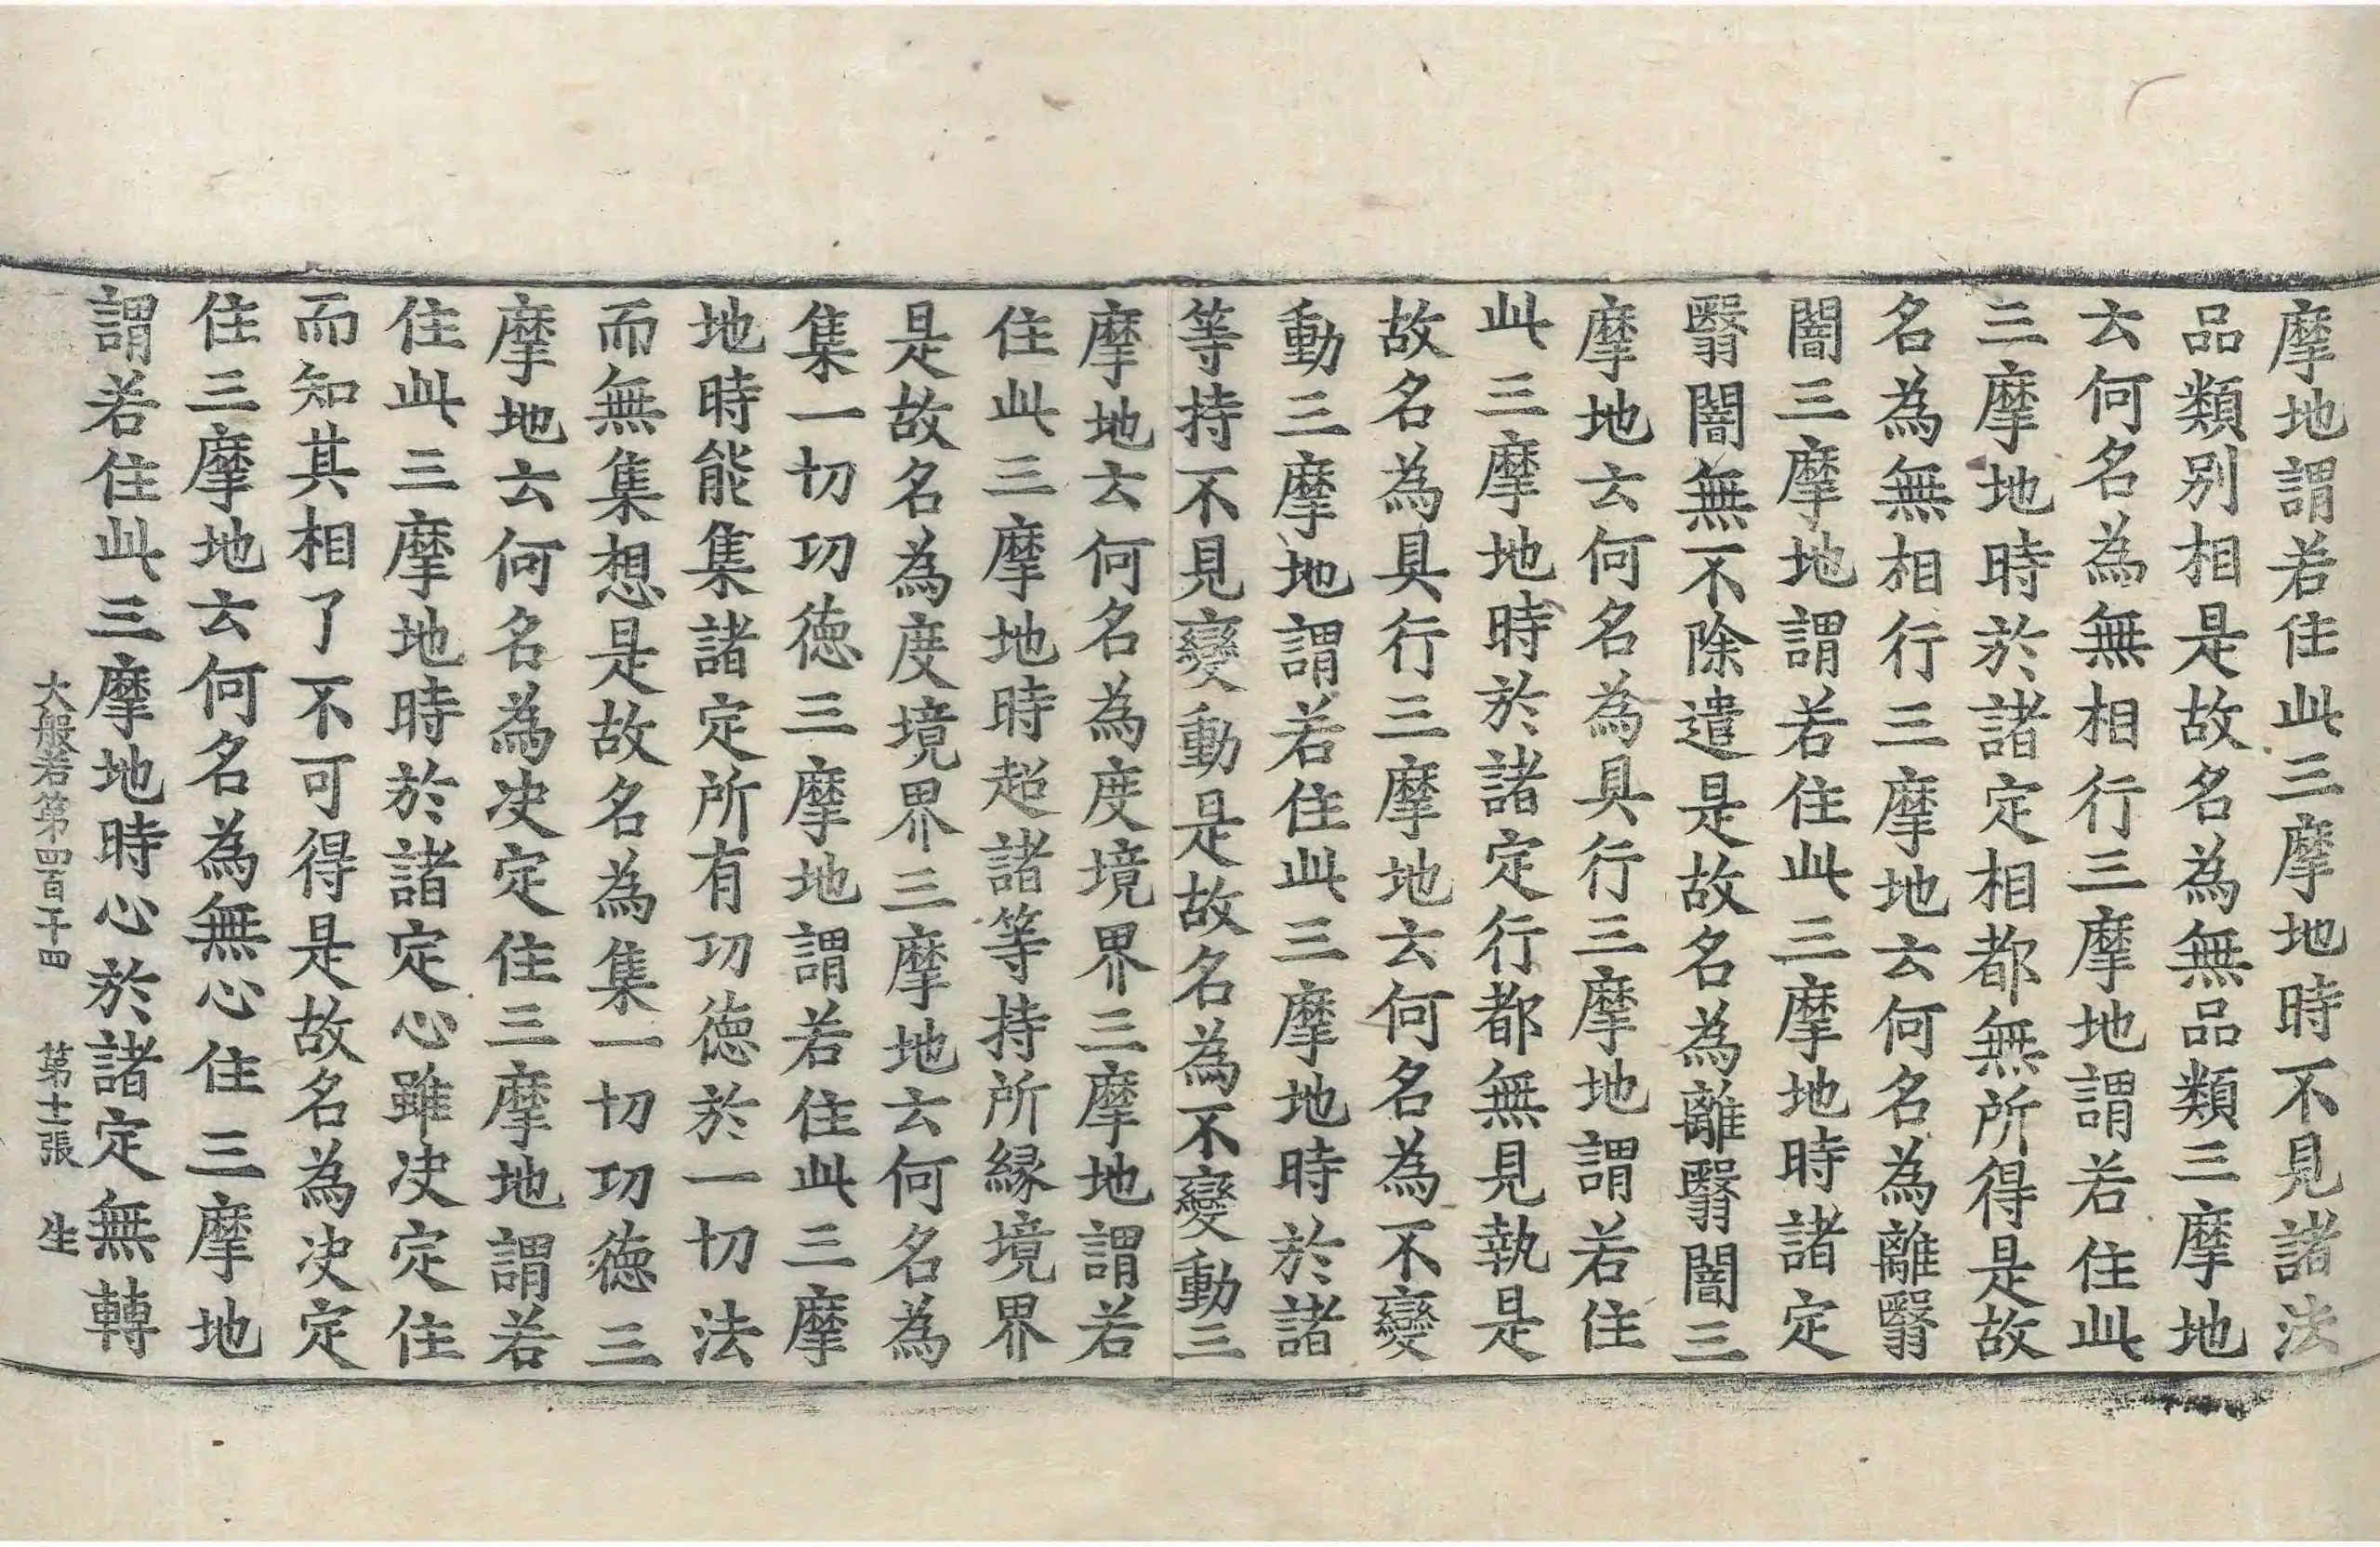 摩地謂若住此三摩地時不見諸法
品類別相是故名為無品類三摩地
云何名為無相行三摩地謂若住此
三摩地時於諸定相都無所得是故
名為無相行三摩地云何名為離翳
闇三摩地謂若住此三摩地時諸定
翳闇無不除遣是故名為離翳闇三
摩地云何名為具行三摩地謂若住
此三摩地時於諸定行都無見執是
故名為具行三摩地云何名為不變
動三摩地謂若住此三摩地時於諸
等持不見變動是故名為不變動三
摩地云何名為度境界三摩地謂若
住此三摩地時超諸等持所緣境界
是故名為度境界三摩地云何名為
集一切功德三摩地謂若住此三摩
地時能集諸定所有功德於一切法
而無集想是故名為集一切功德三
摩地云何名為决定住三摩地謂若
住此三摩地時於諸定心雖决定住
而知其相了不可得是故名為决定
住三摩地云何名為無心住三摩地
謂若住此三摩地時心於諸定無轉
大般若第四百十四 第十一張 生